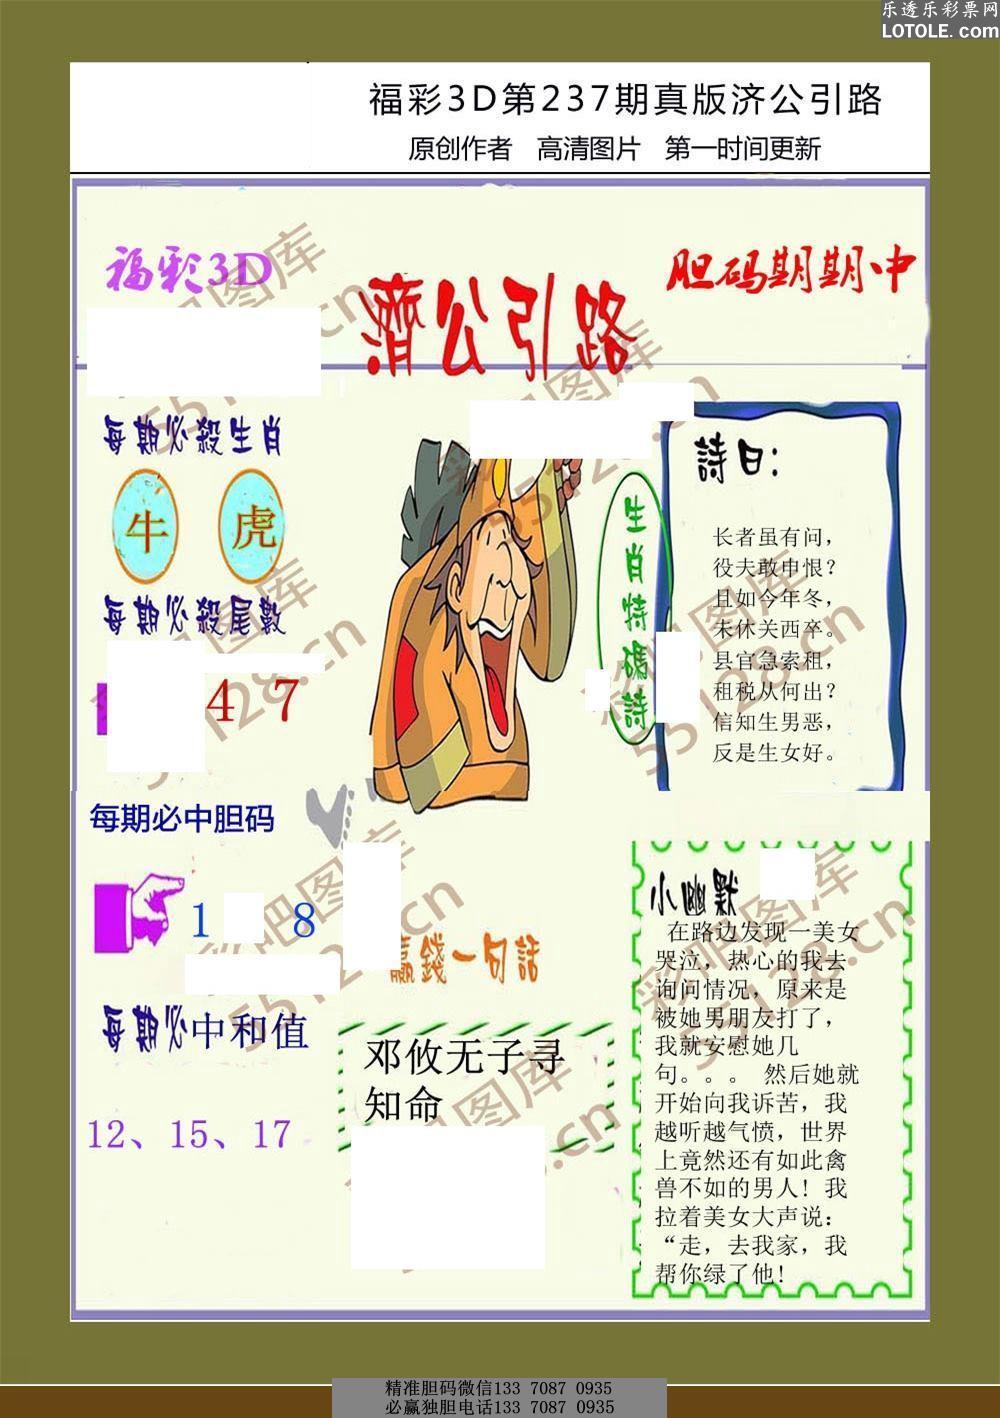 乐透乐彩票网
LOTOLE.com
福彩3D第237期真版济公引路
原创作者 高清图片 第一时间更新
福彩3D
濟公引路
胆码期期中
每期必殺生肖
牛 虎
每期必殺尾數
4 7
每期必中胆码
1 8
每期必中和值
12、15、17
生肖特碼詩
詩曰:
长者虽有问，
役夫敢申恨？
且如今年冬，
未休关西卒。
县官急索租，
租税从何出？
信知生男恶，
反是生女好。
赢錢一句話
邓攸无子寻
知命
小幽默
在路边发现一美女
哭泣，热心的我去
询问情况，原来是
被她男朋友打了，
我就安慰她几
句。。。 然后她就
开始向我诉苦，我
越听越气愤，世界
上竟然还有如此禽
兽不如的男人！我
拉着美女大声说：
“走，去我家，我
帮你绿了他!
彩吧图库
55128.cn
精准胆码微信133 7087 0935
必赢独胆电话133 7087 0935